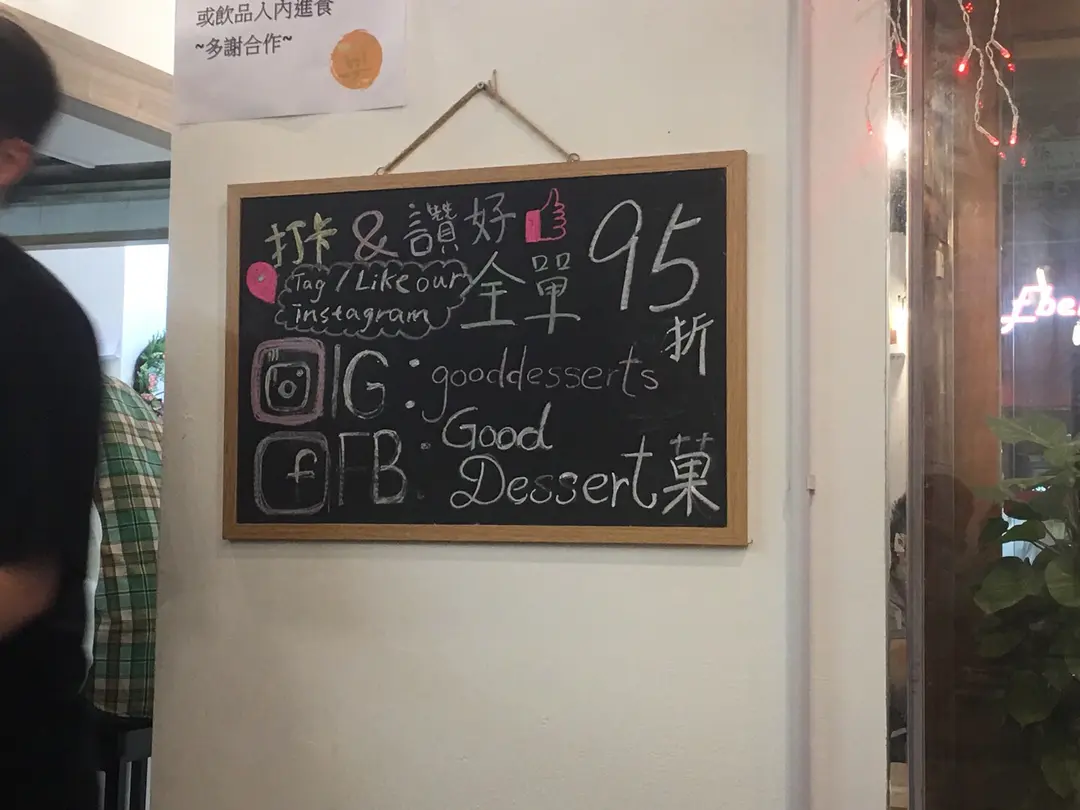 或飲品入內進食
~多謝合作~
打卡 & 讚好
Tag / Like our
instagram
全單 95折
IG : gooddesserts
f FB : Good
Dessert 菓